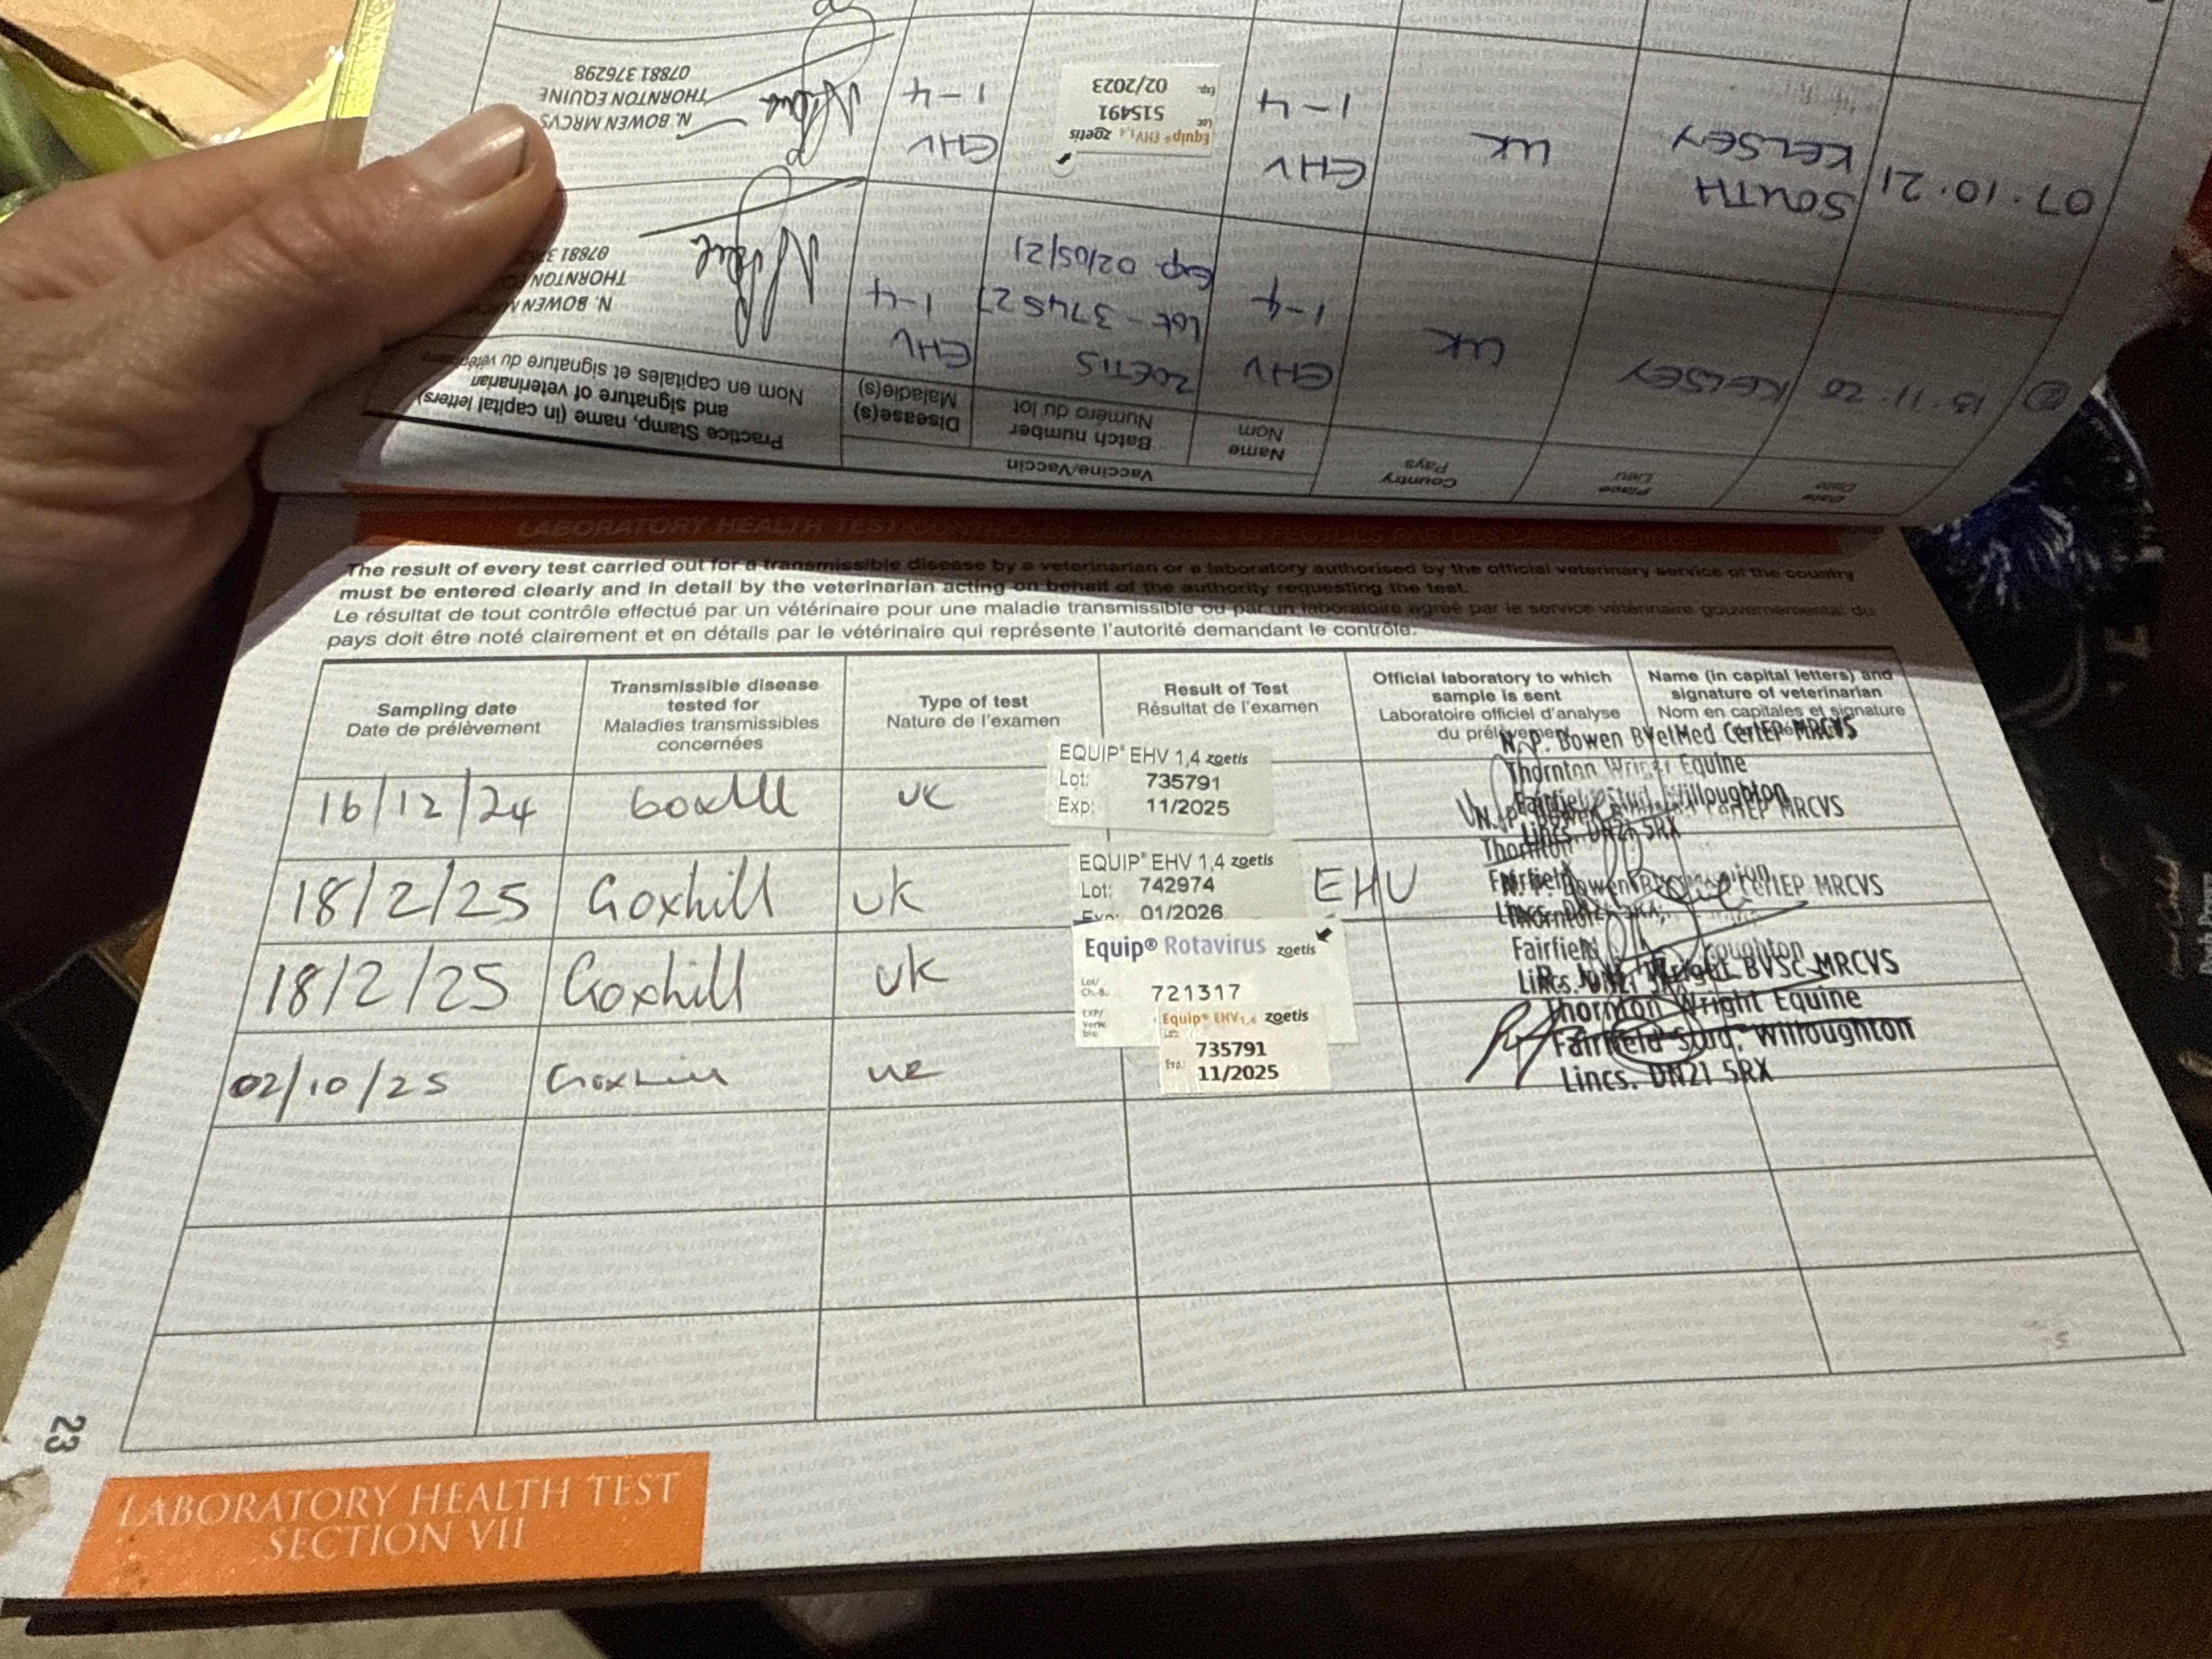 Date
Date
Place
Lieu
Country
Pays
Vaccine/Vaccin
Name
Nom
Batch number
Numéro du lot
Disease(s)
Maladie(s)
Practice Stamp, name (in capital letters)
and signature of veterinarian
Nom en capitales et signature du
13.11.20
KELSEY
UK
EHV
1-4
ZOETIS
Exp. 02/05/21
EHV
1-4
N. BOWEN
THORNTON
07881
07.10.21
SOUTH
KELSEY
UK
EHV
1-4
Equip® EHV1,4 zoetis
Lot 515491
Exp. 02/2023
EHV
1-4
N. BOWEN MRCVS
THORNTON EQUINE
07881 376298
LABORATORY HEALTH TEST
The result of every test carried out for a transmissible disease by a veterinarian or a laboratory authorised by the official veterinary service of the country
must be entered clearly and in detail by the veterinarian acting on behalf of the authority requesting the test.
Le résultat de tout contrôle effectué par un vétérinaire pour une maladie transmissible ou par un laboratoire agréé par le service vétérinaire gouvernemental du
pays doit être noté clairement et en détails par le vétérinaire qui représente l'autorité demandant le contrôle.
Sampling date
Date de prélèvement
Transmissible disease
tested for
Maladies transmissibles
concernées
Type of test
Nature de l'examen
Result of Test
Résultat de l'examen
Official laboratory to which
sample is sent
Laboratoire officiel d'analyse
du prélèvement
Name (in capital letters) and
signature of veterinarian
Nom en capitales et signature
16/12/24
UK
EQUIP® EHV 1,4 zoetis
Lot: 735791
Exp: 11/2025
N. P. Bowen BVetMed CertEP MRCVS
Thornton Wright Equine
Fairfield Stud, Willoughton
Lincs. DN21 5RX
18/2/25
Goxhill
UK
EQUIP® EHV 1,4 zoetis
Lot: 742974
Exp: 01/2026
EHV
CertEP MRCVS
Thornton
Fairfield
18/2/25
Goxhill
UK
Equip® Rotavirus zoetis
Lot/
Ch.-B.: 721317
EXP/
Verw.
bis:
Bowen
CertEP MRCVS
Fairfield
Lincs.
02/10/25
Goxhill
UK
Equip® EHV1,4 zoetis
Lot: 735791
Exp.: 11/2025
Wright BVSC MRCVS
Thornton Wright Equine
Fairfield Stud, Willoughton
Lincs. DN21 5RX
23
LABORATORY HEALTH TEST
SECTION VII